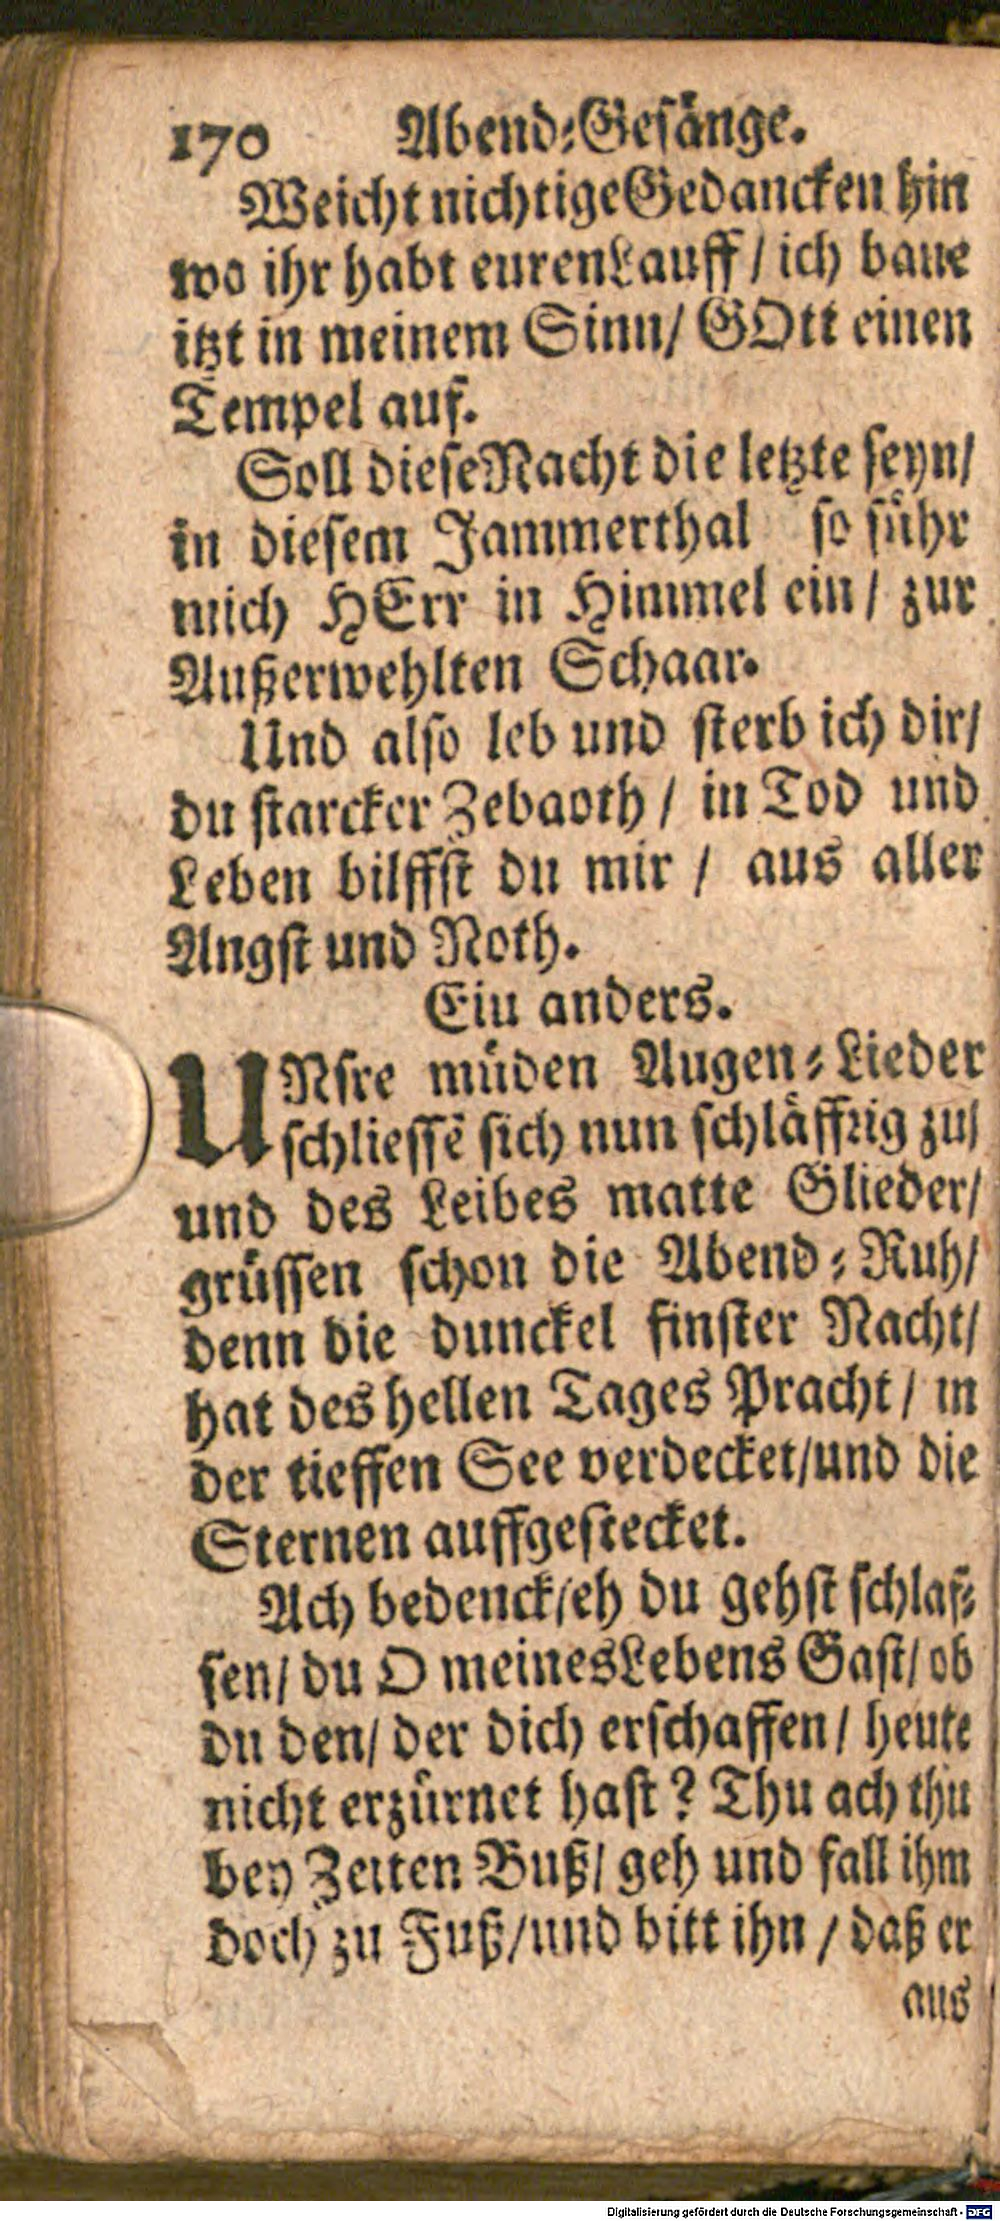 170 Abend-Gesänge.
Weicht nichtige Gedancken hin
wo ihr habt euren Lauff / ich baue
itzt in meinem Sinn / GOtt einen
Tempel auf.
Soll diese Nacht die letzte seyn /
in diesem Jammerthal so führ
mich HErr in Himmel ein / zur
Außerwehlten Schaar.
Und also leb und sterb ich dir /
du starcker Zebaoth / in Tod und
Leben hilffst du mir / aus aller
Angst und Noth.
Eiu anders.
UNsre müden Augen-Lieder
schliessē sich nun schläffrig zu /
und des Leibes matte Glieder /
grüssen schon die Abend-Ruh /
denn die dunckel finster Nacht /
hat des hellen Tages Pracht / in
der tieffen See verdecket / und die
Sternen auffgestecket.
Ach bedenck / eh du gehst schlaf-
fen / du O meines Lebens Gast / ob
du den / der dich erschaffen / heute
nicht erzürnet hast? Thu ach thu
bey Zeiten Buß / geh und fall ihm
doch zu Fuß / und bitt ihn / daß er
aus
Digitalisierung gefördert durch die Deutsche Forschungsgemeinschaft - DFG